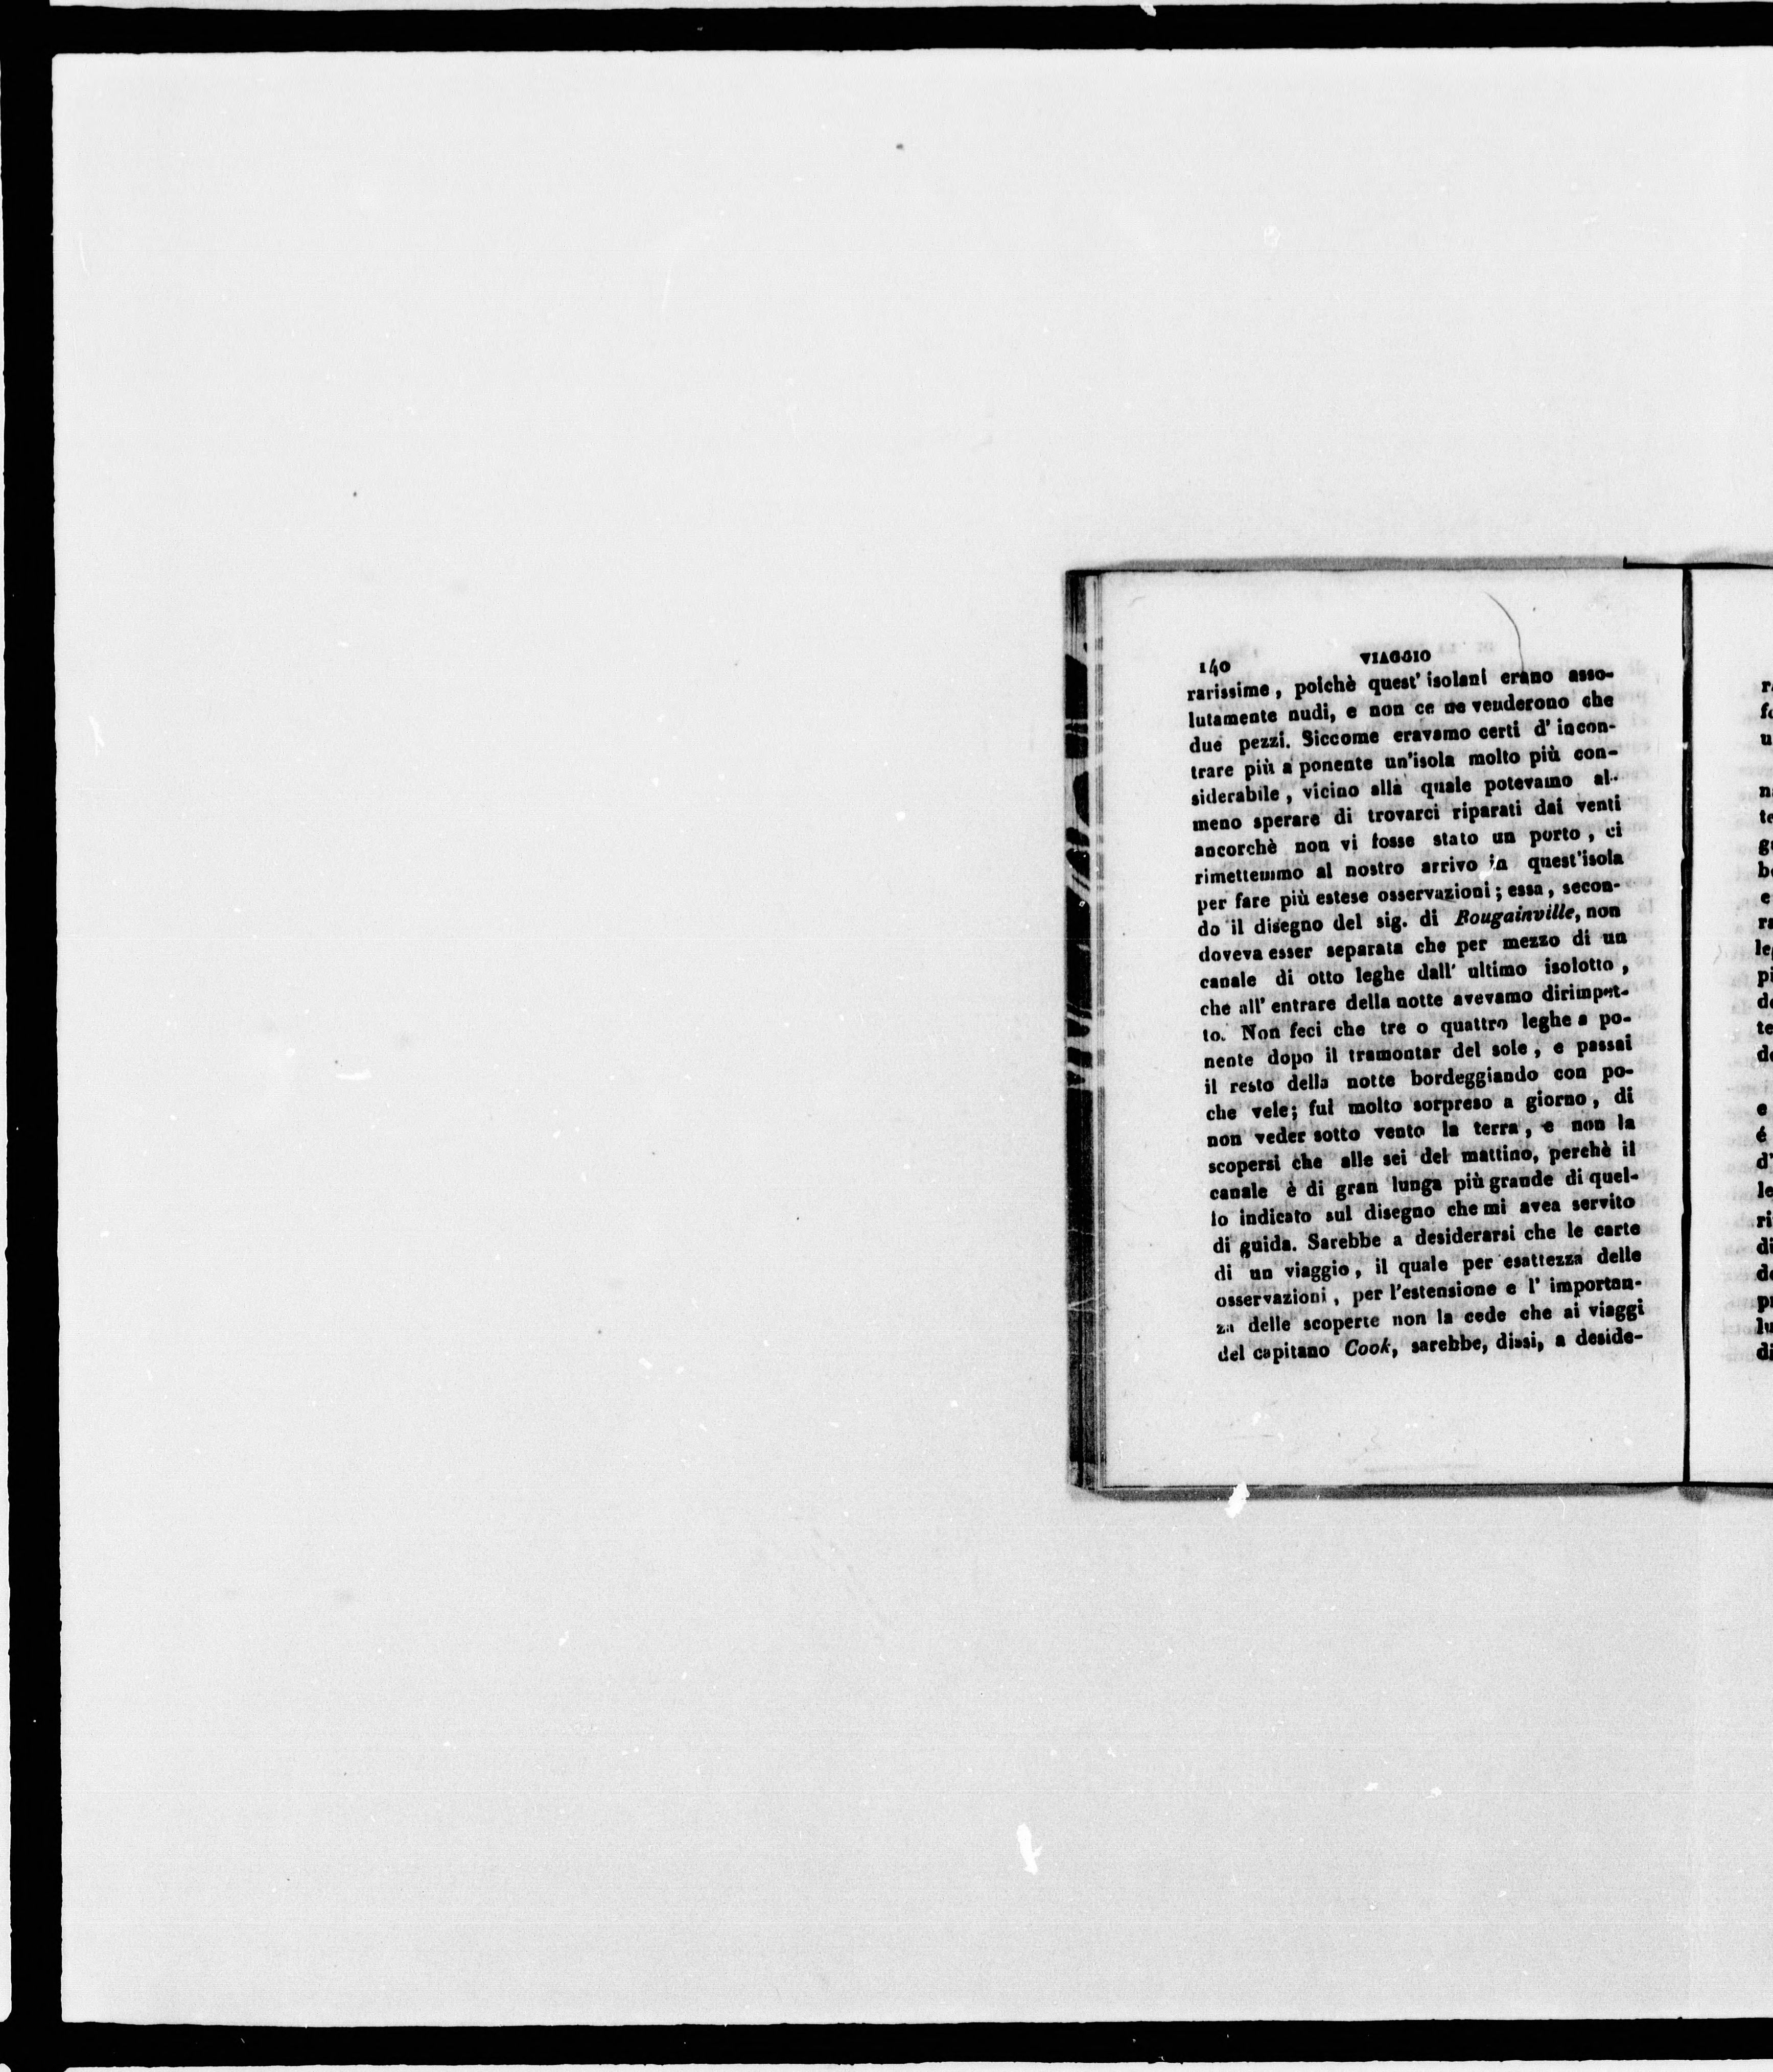 140 VIAGGIO
rarissime, poichè quest' isolani erano asso-
lutamente nudi, e non ce ne venderono che
due pezzi. Siccome eravamo certi d' incon-
trare più a ponente un'isola molto più con-
siderabile, vicino alla quale potevamo al-
meno sperare di trovarci riparati dai venti
ancorchè non vi fosse stato un porto, ci
rimettemmo al nostro arrivo in quest'isola
per fare più estese osservazioni; essa, secon-
do il disegno del sig. di Bougainville, non
doveva esser separata che per mezzo di un
canale di otto leghe dall' ultimo isolotto,
che all' entrare della notte avevamo dirimpet-
to. Non feci che tre o quattro leghe a po-
nente dopo il tramontar del sole, e passai
il resto della notte bordeggiando con po-
che vele; fui molto sorpreso a giorno, di
non veder sotto vento la terra, e non la
scopersi che alle sei del mattino, perchè il
canale è di gran lunga più grande di quel-
lo indicato sul disegno che mi avea servito
di guida. Sarebbe a desiderarsi che le carte
di un viaggio, il quale per esattezza delle
osservazioni, per l'estensione e l' importan-
za delle scoperte non la cede che ai viaggi
del capitano Cook, sarebbe, dissi, a deside-